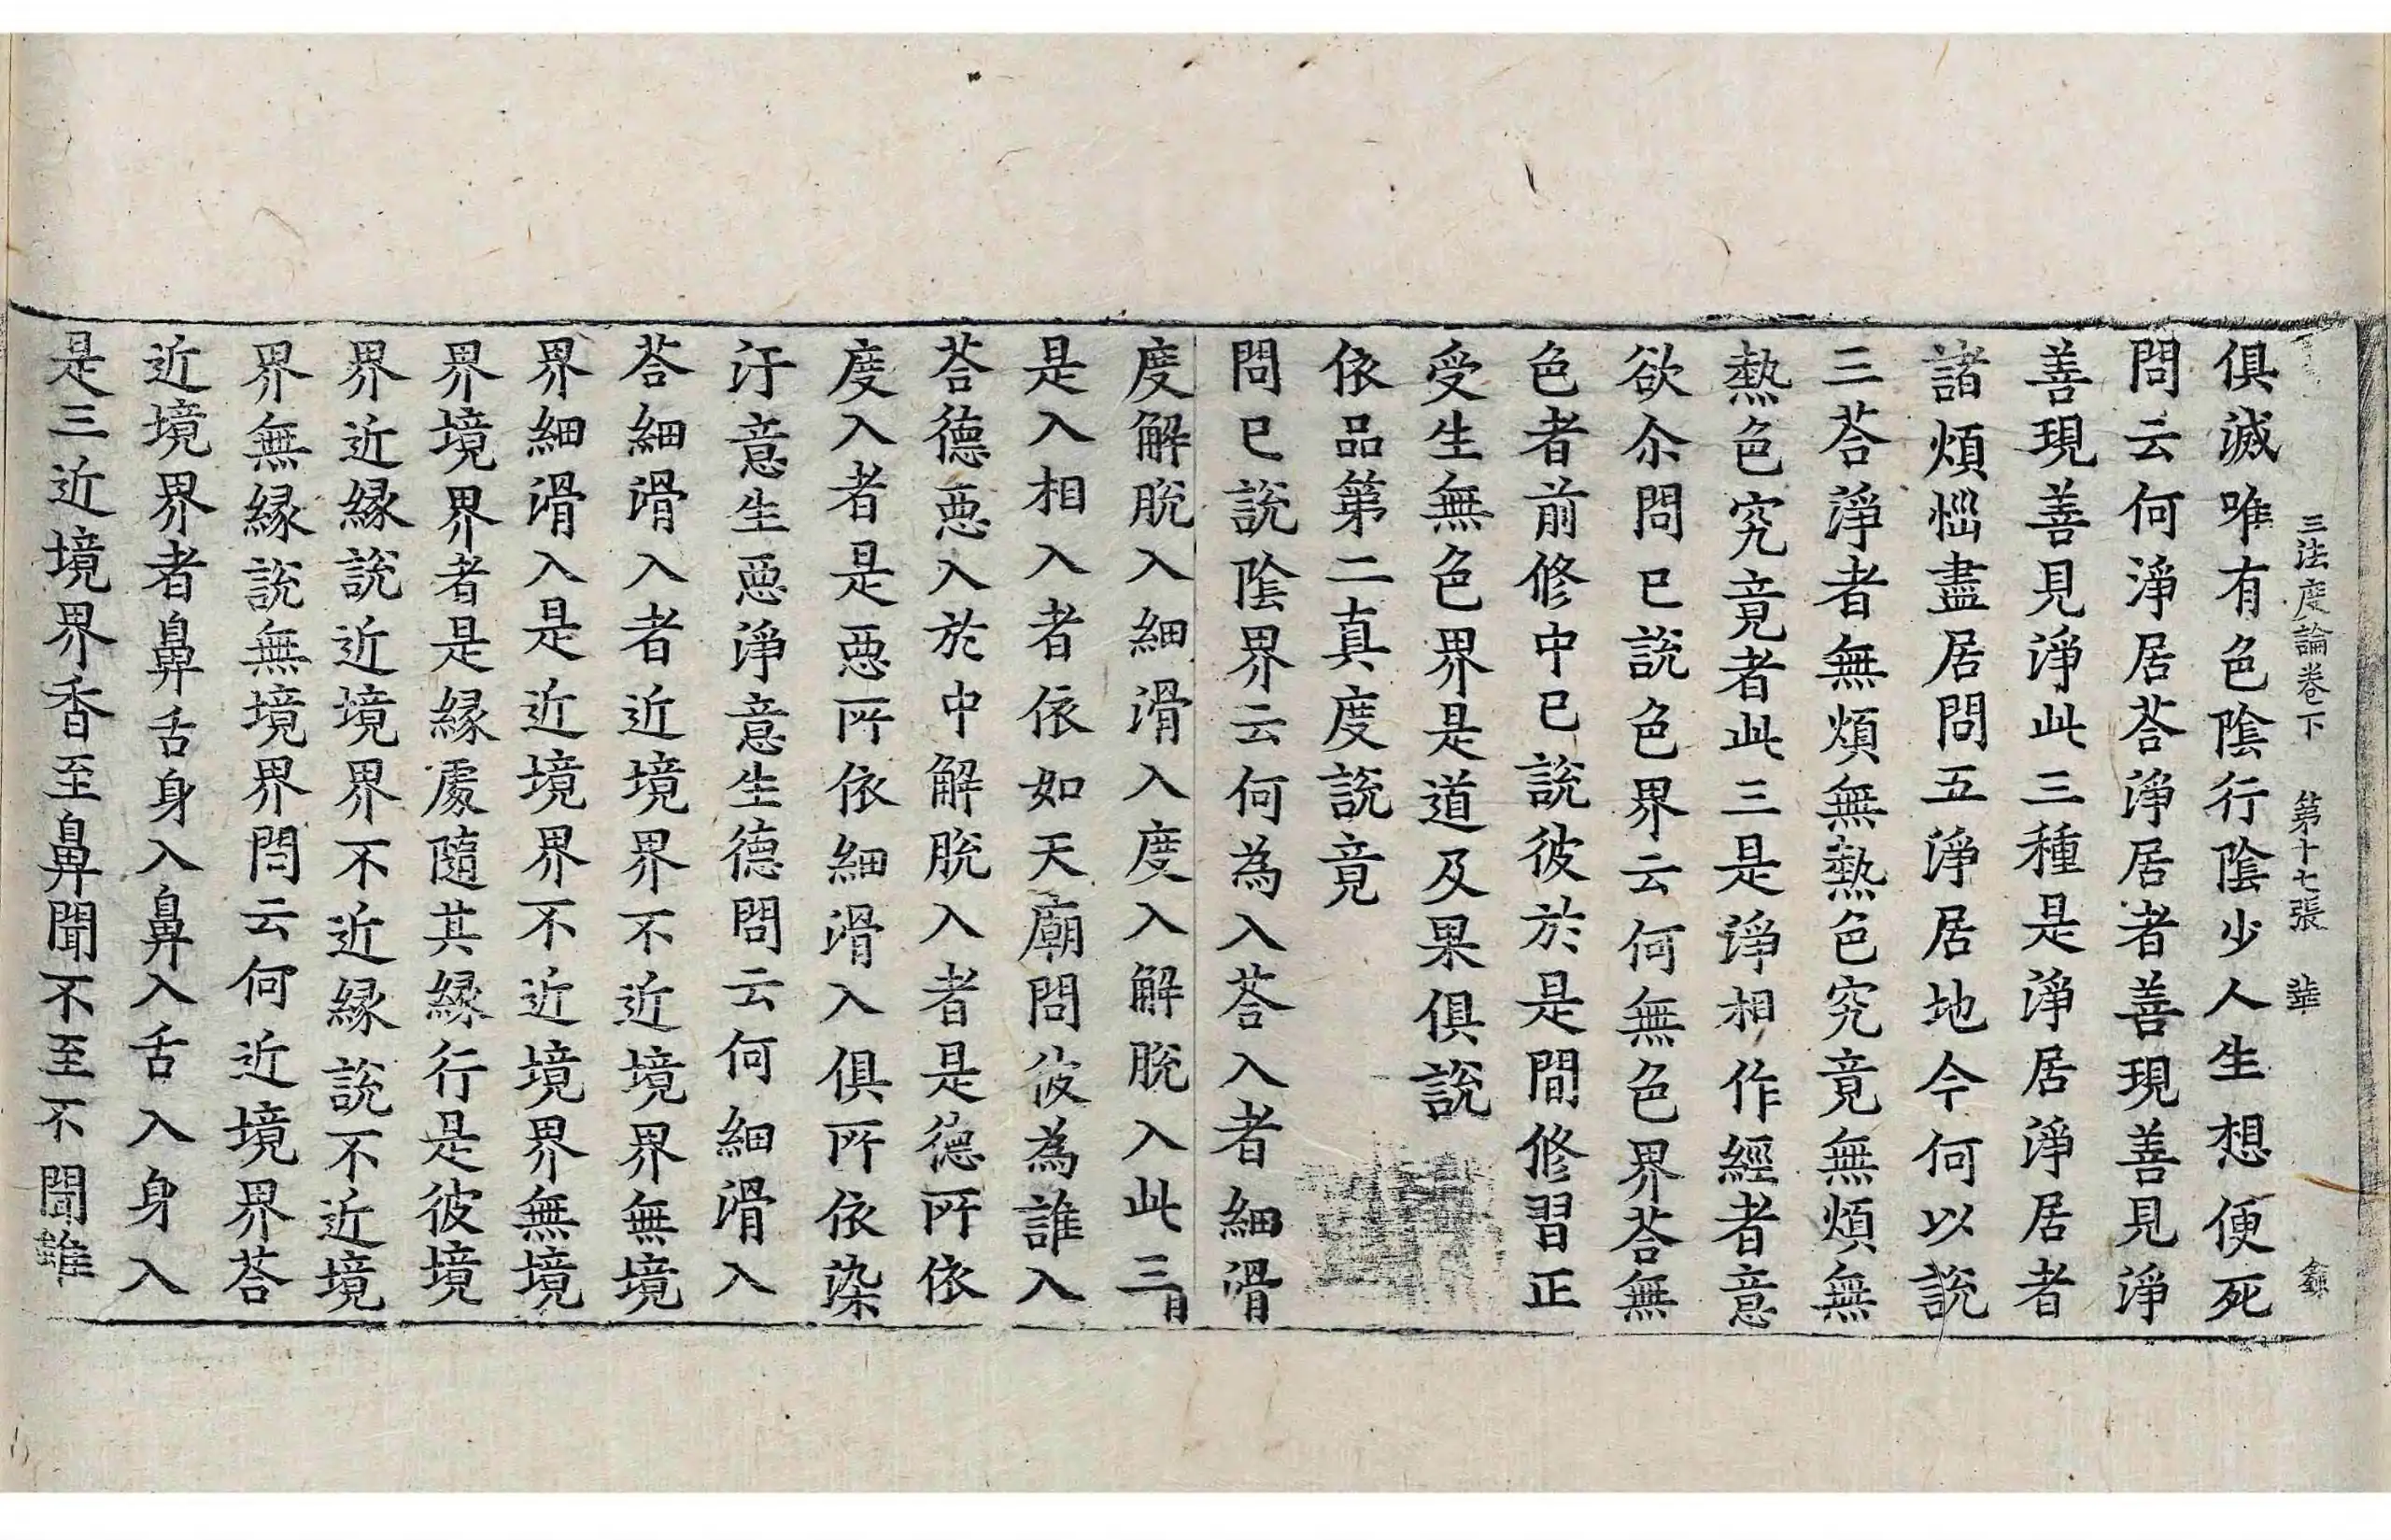 三法度論卷下 第十七張 華
俱滅唯有色陰行陰少人生想便死
問云何淨居荅淨居者善現善見淨
善現善見淨此三種是淨居淨居者
諸煩惱盡居問五淨居地今何以說
三荅淨者無煩無熱色究竟無煩無
熱色究竟者此三是淨相作經者意
欲尒問已說色界云何無色界荅無
色者前修中已說彼於是間修習正
受生無色界是道及果俱說
依品第二真度說竟
問已說陰界云何為入荅入者細滑
度解脫入細滑入度入解脫入此三
是入相入者依如天廟問彼為誰入
荅德惡入於中解脫入者是德所依
度入者是惡所依細滑入俱所依染
汙意生惡淨意生德問云何細滑入
荅細滑入者近境界不近境界無境
界細滑入是近境界不近境界無境
界境界者是緣處隨其緣行是彼境
界近緣說近境界不近緣說不近境
界無緣說無境界問云何近境界荅
近境界者鼻舌身入鼻入舌入身入
是三近境界香至鼻聞不至不聞雖